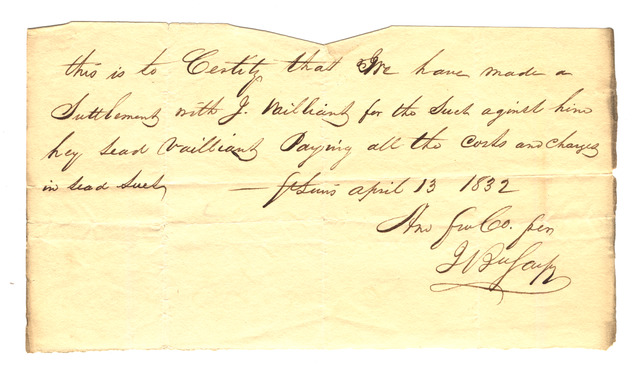 this is to Certify that We have made a
Suttlement with J. Vailliant for the Suet aginst him
hey sead Vailliant Paying all the Costs and charges
in sead Suet — St Luis april 13 1832
Am Fur Co. per